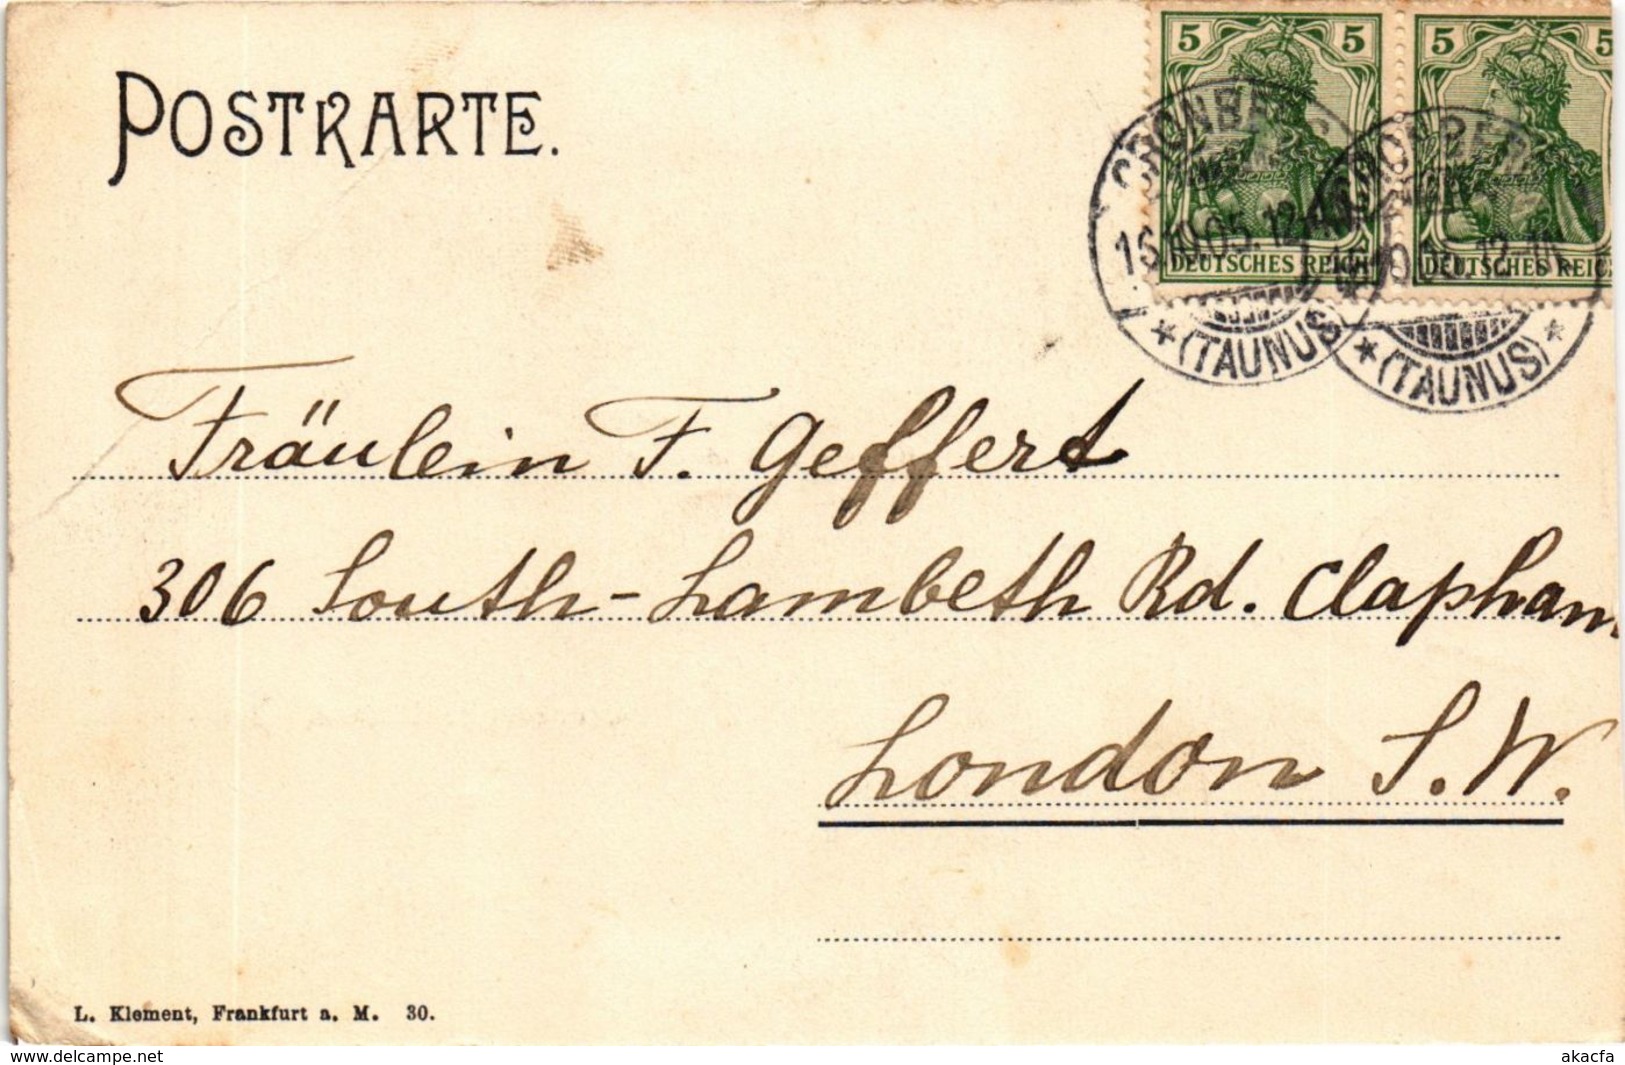 POSTKARTE.
5 5 5 5
DEUTSCHES REICH DEUTSCHES REICH
CRONBERG CRONBERG
16.10.05. 12-1N.
*(TAUNUS) *(TAUNUS)*
Fräulein F. Geffert
306 South-Lambeth Rd. Clapham
London S.W.
L. Klement, Frankfurt a. M. 30.
www.delcampe.net
akacfa